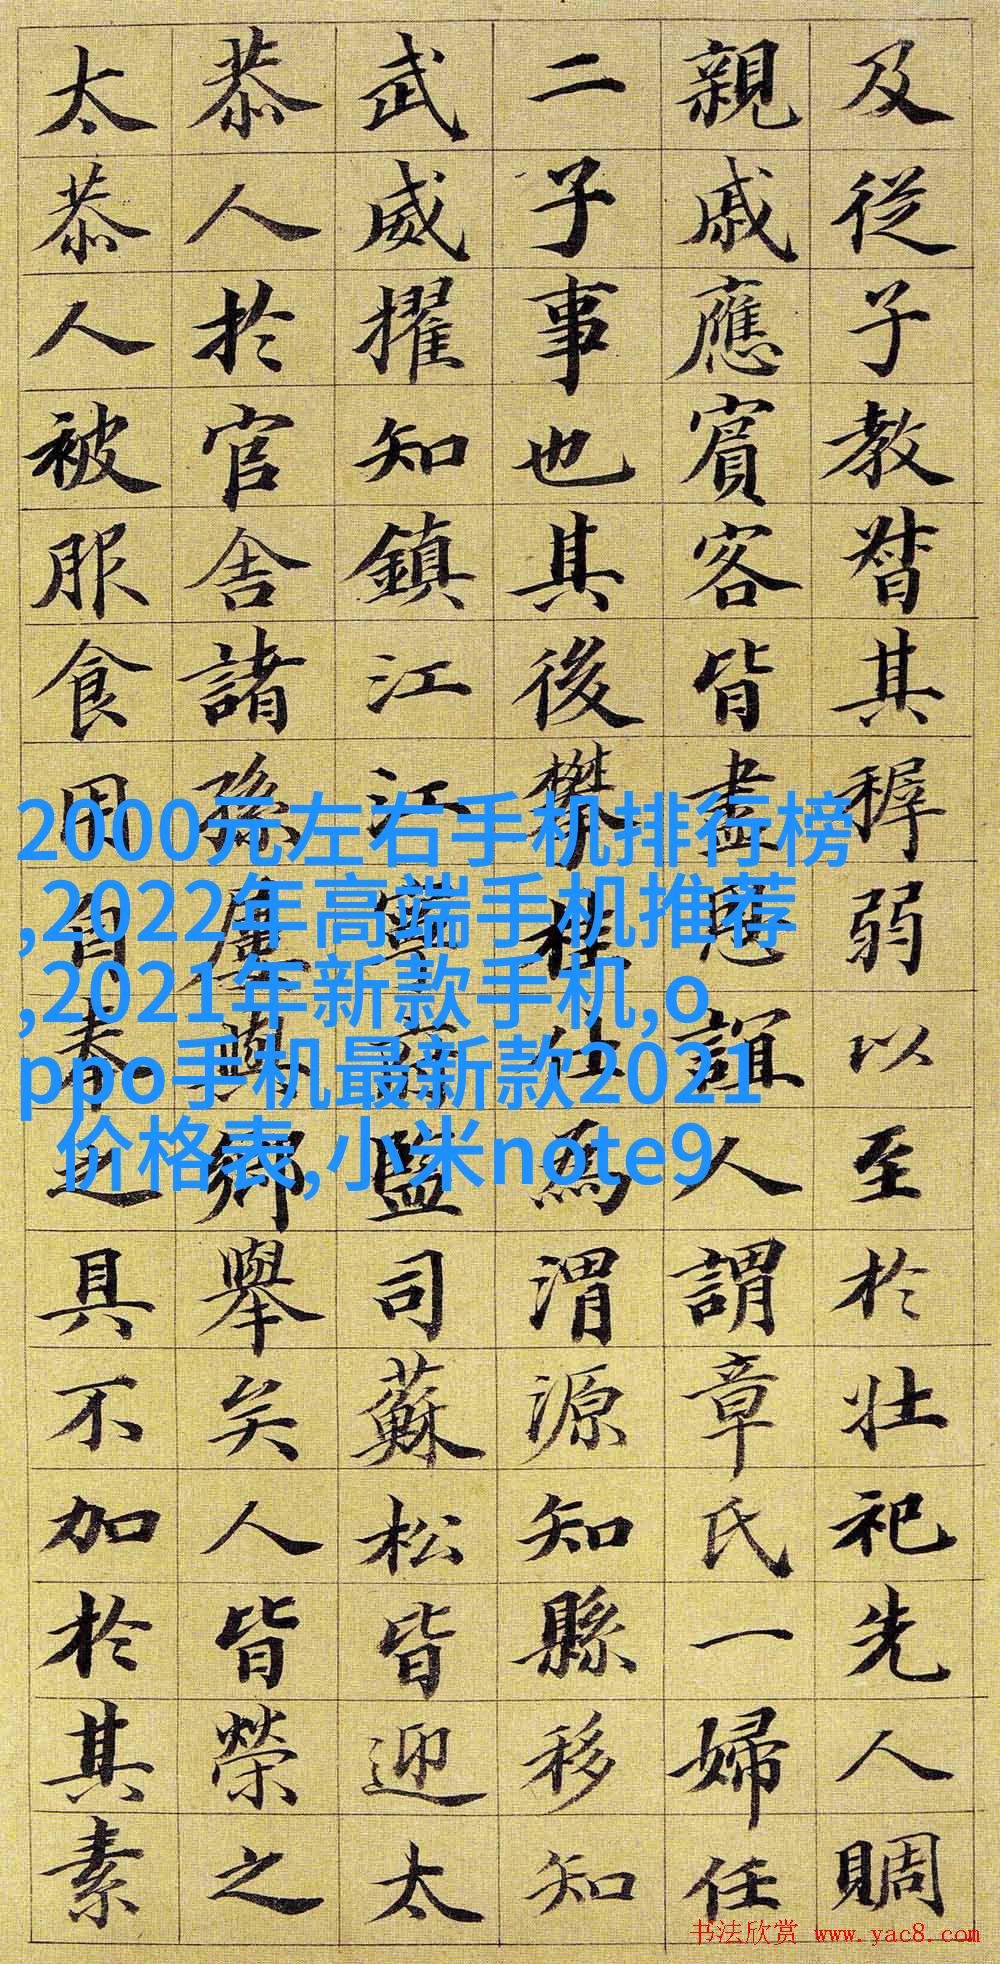 及從子教督其穉弱以至於壯祀先人賙
親戚應賓客皆盡恩誼人謂章氏一婦任
二子事也其後攀桂仕為渭源知縣移知
武威擢知鎮江江寧監司蘇松皆迎太
恭人於官舍諸孫屢與鄉舉矣人皆榮之
太恭人被服食用自奉之具不加於其素
2000元左右手机排行榜
,2022年高端手机推荐
,2021年新款手机,o
ppo手机最新款2021
价格表,小米note9
书法欣赏 www.yac8.com